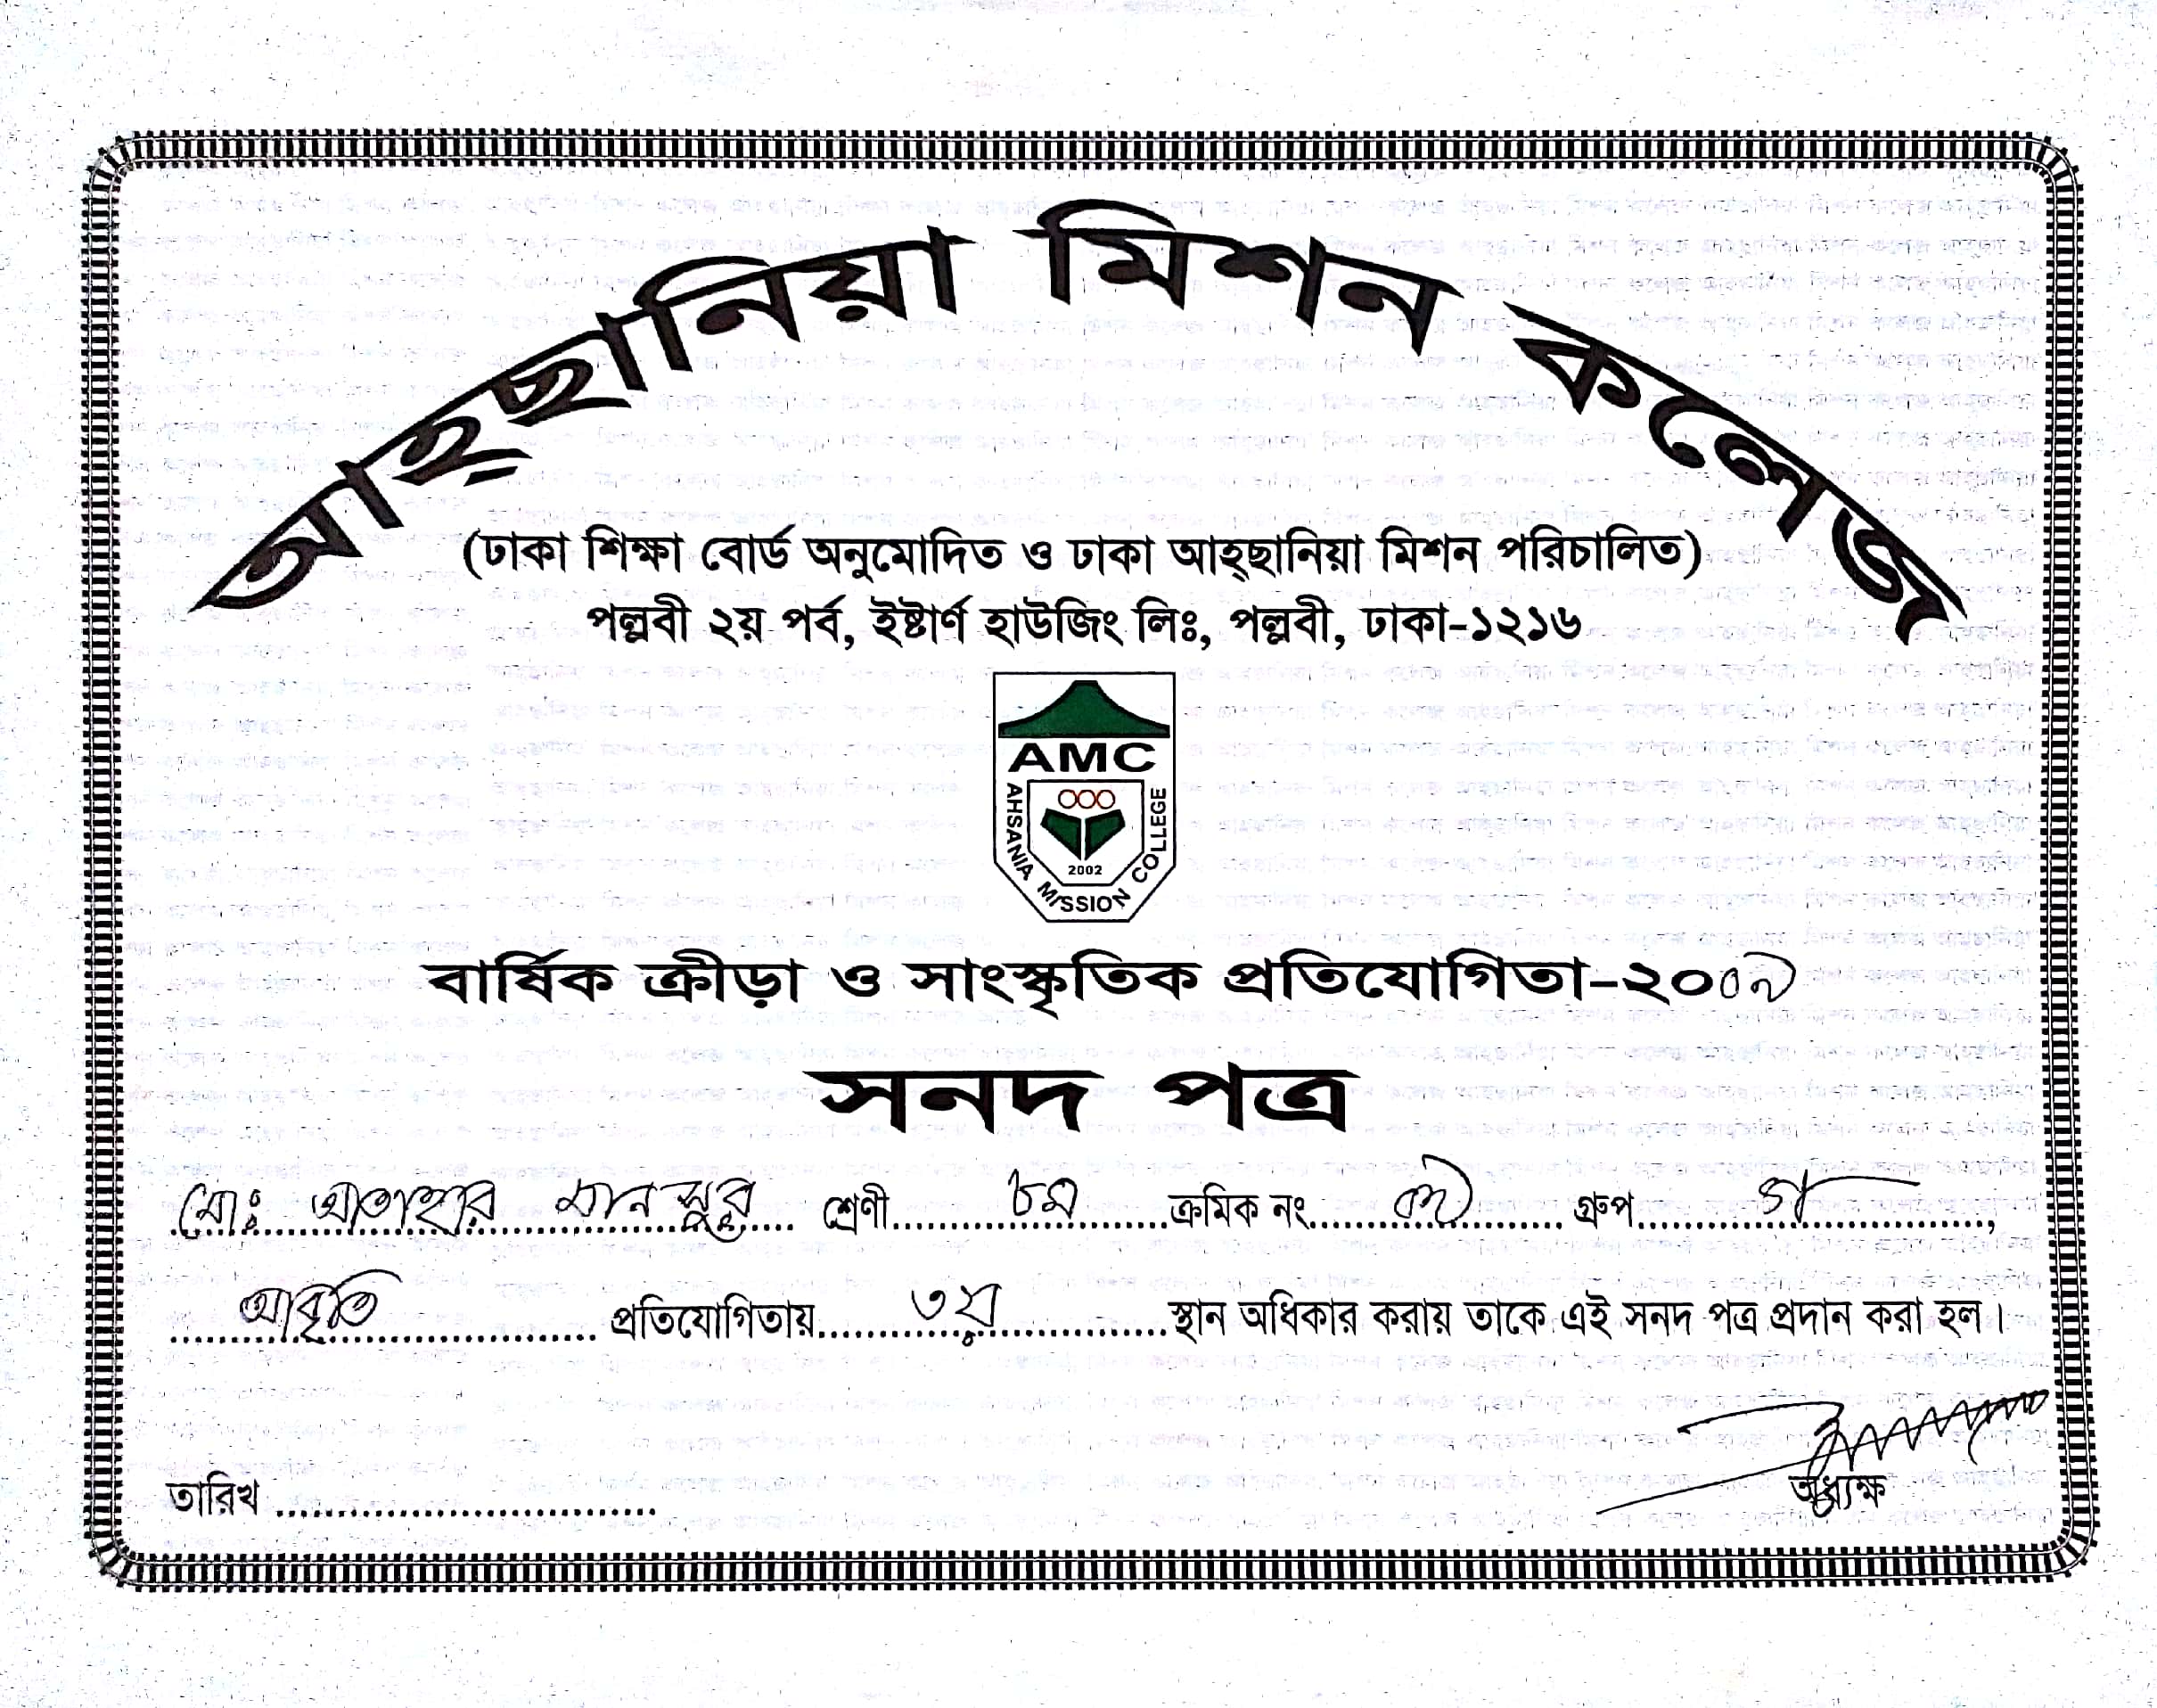 আহ্ছানিয়া মিশন কলেজ
(ঢাকা শিক্ষা বোর্ড অনুমোদিত ও ঢাকা আহ্ছানিয়া মিশন পরিচালিত)
পল্লবী ২য় পর্ব, ইষ্টার্ণ হাউজিং লিঃ, পল্লবী, ঢাকা-১২১৬
AMC
AHSANIA MISSION COLLEGE
2002
বার্ষিক ক্রীড়া ও সাংস্কৃতিক প্রতিযোগিতা-২০০৯
সনদ পত্র
মোঃ আতাহার মানসুর শ্রেণী ৮ম ক্রমিক নং গ্রুপ গ,
আবৃতি প্রতিযোগিতায় ৩য় স্থান অধিকার করায় তাকে এই সনদ পত্র প্রদান করা হল।
তারিখ
অধ্যক্ষ